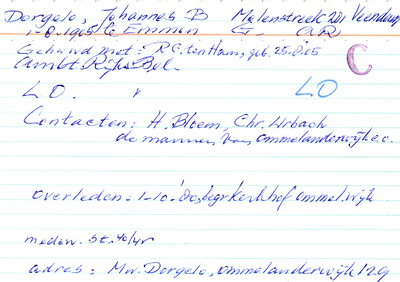 Dorgelo, Johannes B Molenstreek 211 Veendam
1-8-1905 Emmen G. GR
Gehuwd met: R.G. ten Ham, geb. 25-8-05
Ambt. Rijks Bel. C
LO. LO
Contacten: H. Bloem, Chr. Urbach
de mannen van Ommelanderwijk e.o.
overleden: 1-10- begr Kerkhof Ommel.Wijk
medew. St. 40/45
adres: Mw. Dorgelo, Ommelanderwijk 129